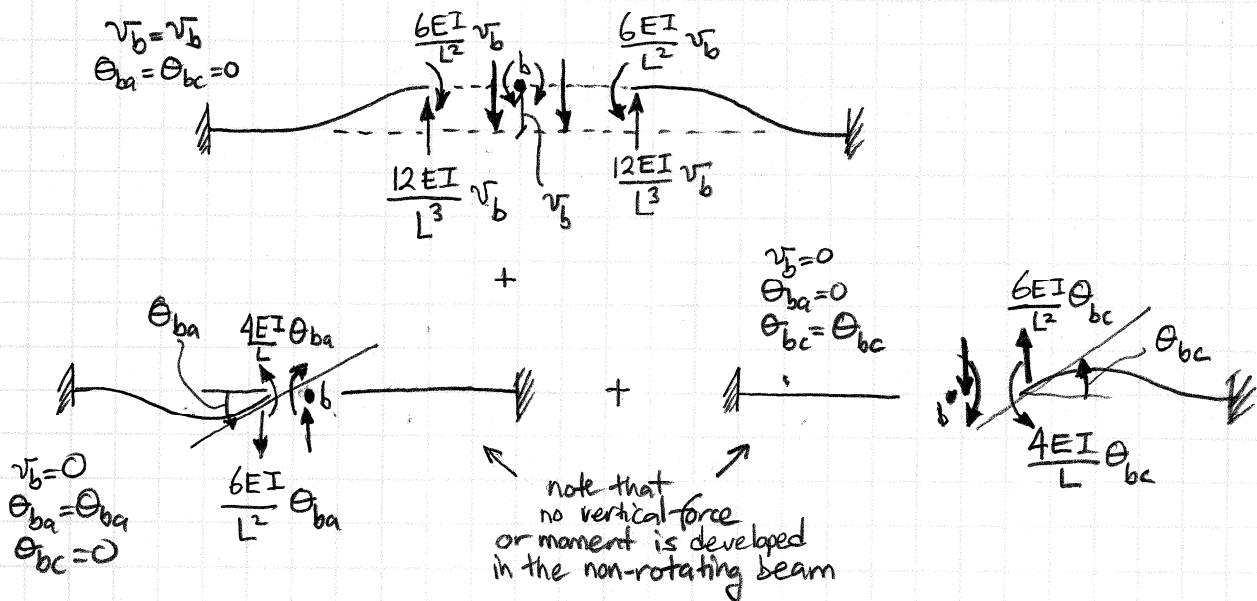 v_b = v_b
θ_ba = θ_bc = 0
6EI/L² v_b
b
6EI/L² v_b
12EI/L³ v_b
v_b
12EI/L³ v_b
+
θ_ba
4EI/L θ_ba
b
6EI/L² θ_ba
v_b = 0
θ_ba = θ_ba
θ_bc = 0
+
v_b = 0
θ_ba = 0
θ_bc = θ_bc
b
6EI/L² θ_bc
θ_bc
4EI/L θ_bc
note that
no vertical force
or moment is developed
in the non-rotating beam